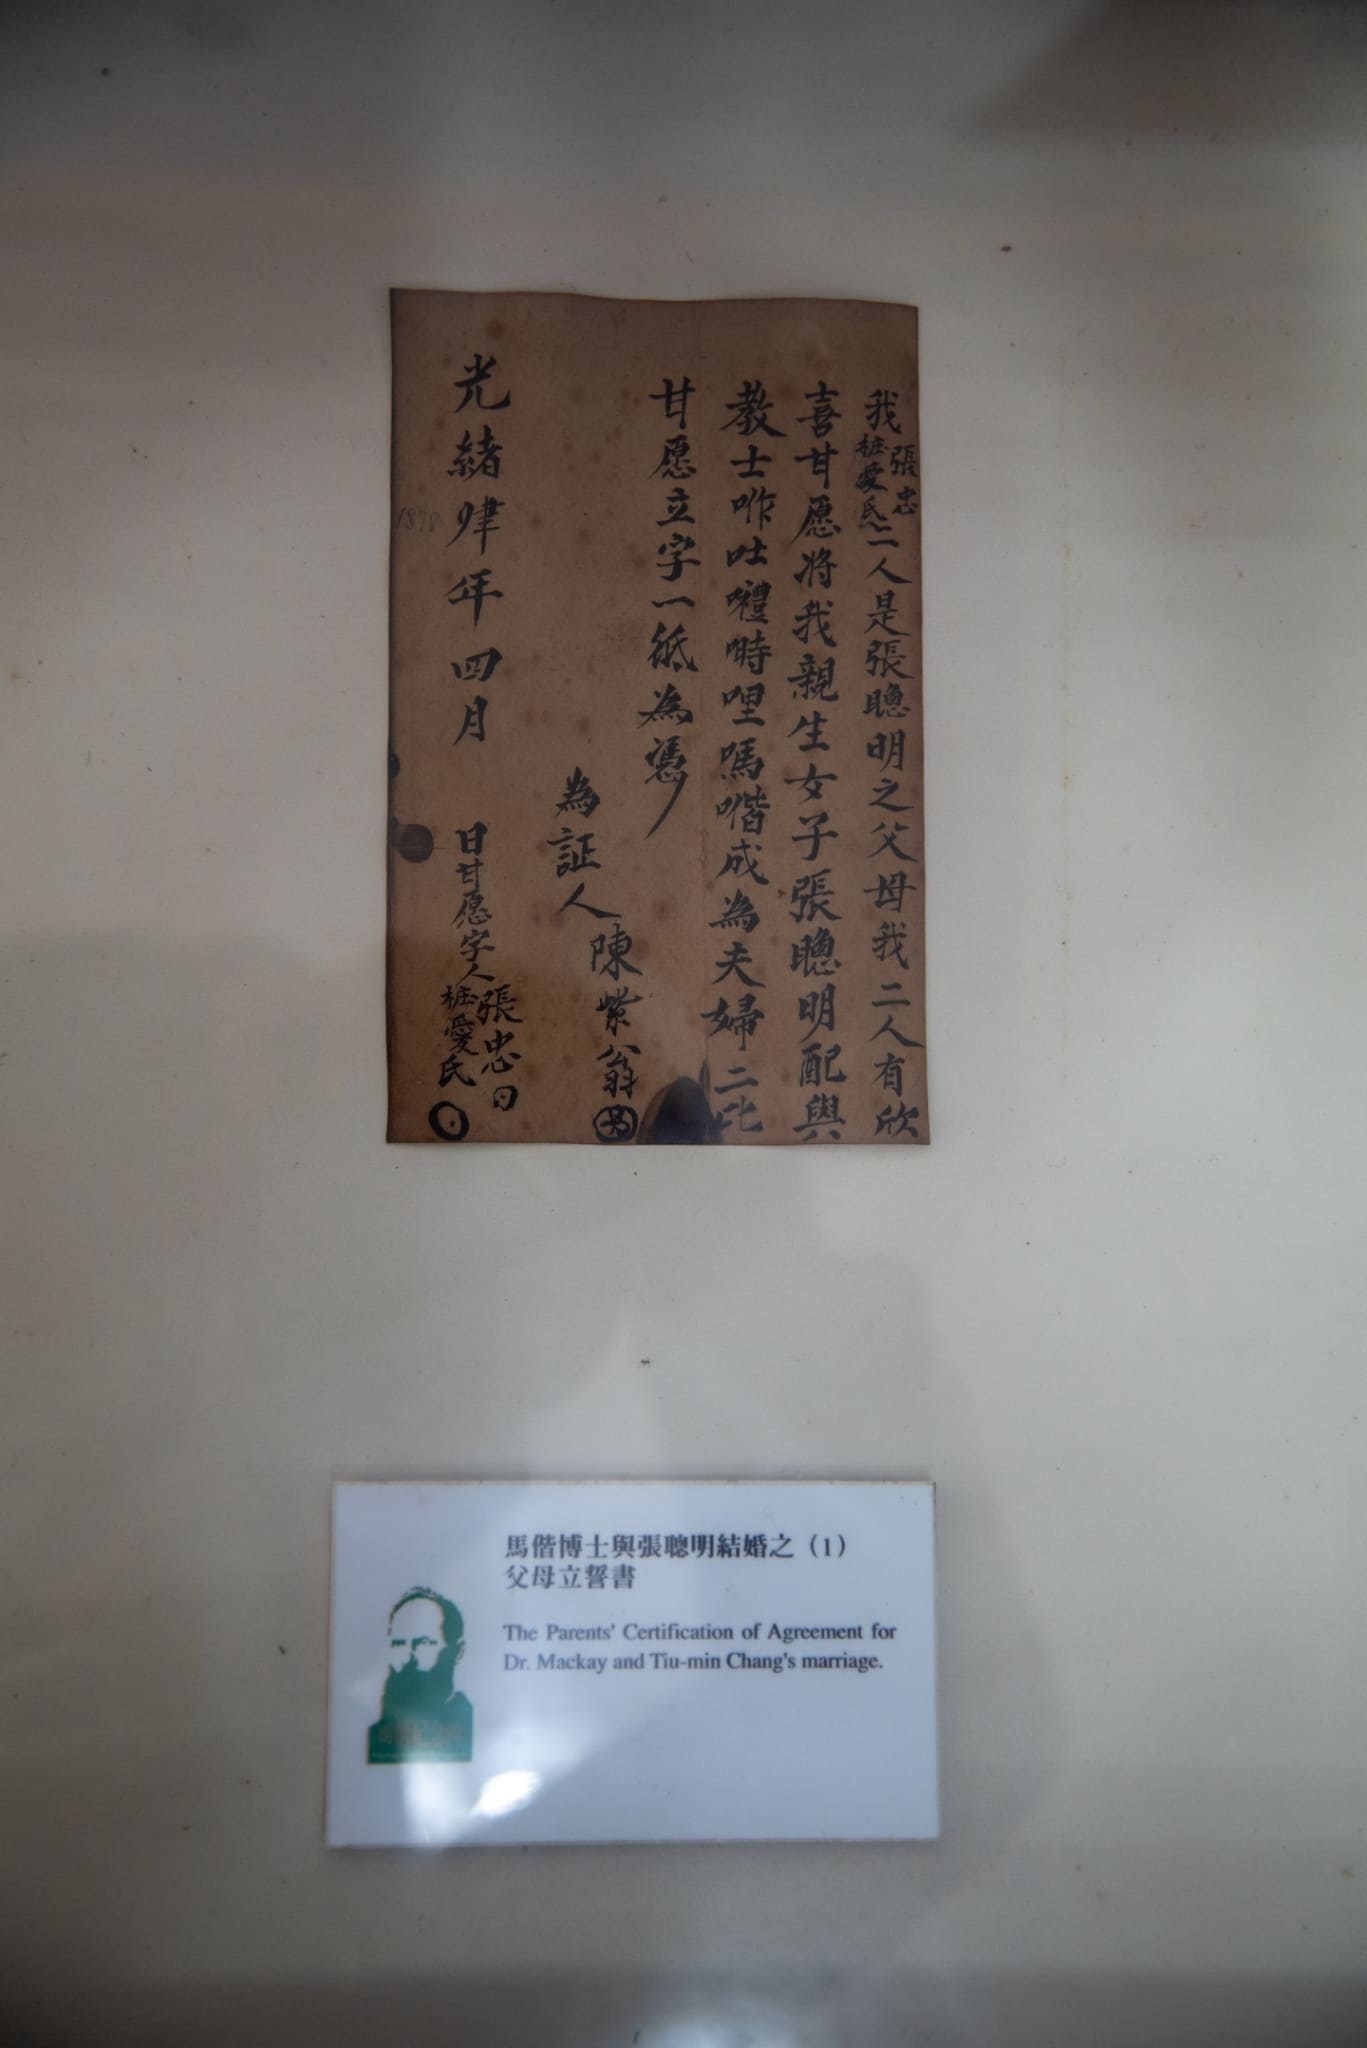 我張忠
桩愛氏二人是張聰明之父母我二人有欣
喜甘愿将我親生女子張聰明配與
教士咋吐囄時哩嗎喈成為夫婦二比
甘愿立字一紙為憑
為証人陳紫翁
光緒肆年四月 日甘愿字人張忠
桩愛氏
1878
馬偕博士與張聰明結婚之（1）
父母立誓書
The Parents' Certification of Agreement for
Dr. Mackay and Tiu-min Chang's marriage.